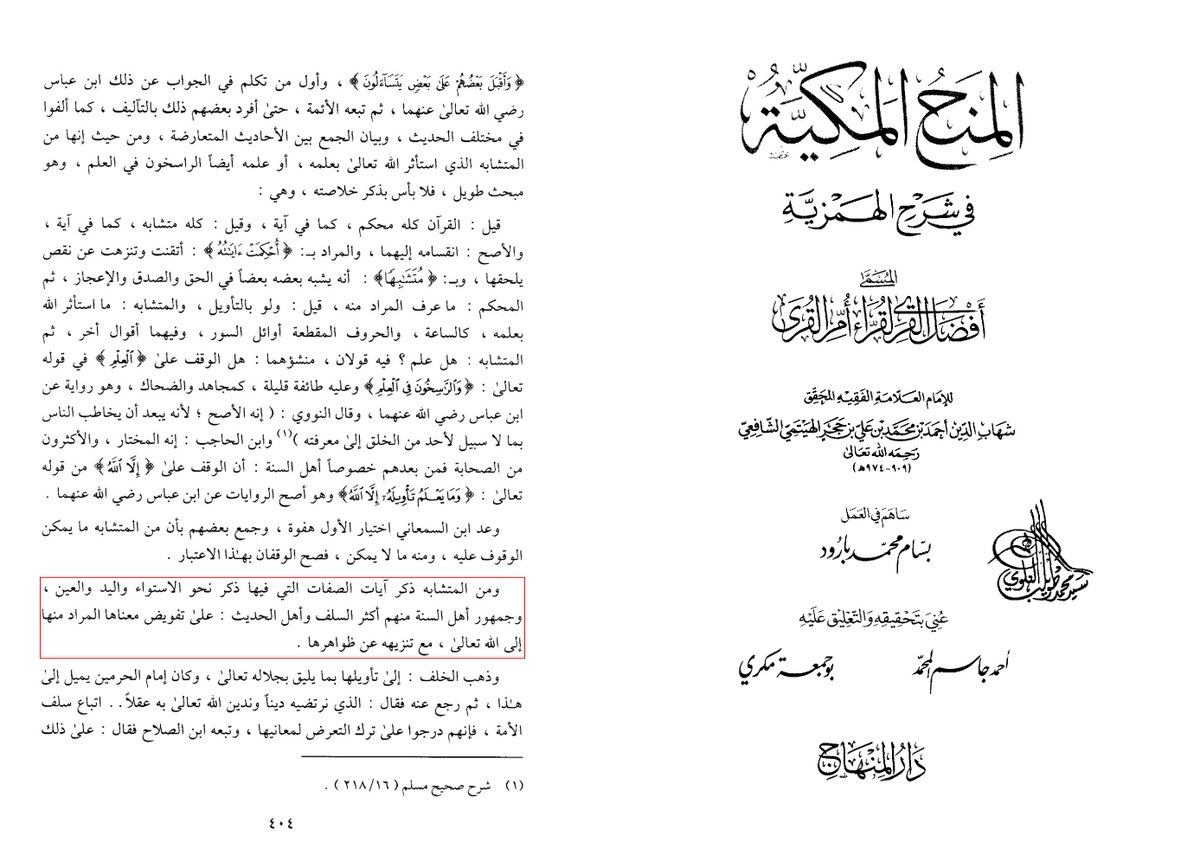 المنح المكية
في شرح الهمزية
المسمى
أفضل القرى لقراء أم القرى
للإمام العلامة الفقيه المحقق
شهاب الدين أحمد بن محمد بن علي بن حجر الهيتمي الشافعي
رحمه الله تعالى
(٩٠٩-٩٧٤ه)
ساهم في العمل
بسام محمد بارود
عني بتحقيقه والتعليق عليه
أحمد جاسم المحمد
بوجمعة مكري
دار المنهاج
﴿ وَأَقْبَلَ بَعْضُهُمْ عَلَىٰ بَعْضٍ يَتَسَآءَلُونَ ﴾ ، وأول من تكلم في الجواب عن ذلك ابن عباس
رضي الله تعالىٰ عنهما ، ثم تبعه الأئمة ، حتىٰ أفرد بعضهم ذلك بالتآليف ، كما ألفوا
في مختلف الحديث ، وبيان الجمع بين الأحاديث المتعارضة ، ومن حيث إنها من
المتشابه الذي استأثر الله تعالىٰ بعلمه ، أو علمه أيضاً الراسخون في العلم ، وهو
مبحث طويل ، فلا بأس بذكر خلاصته ، وهي :
قيل : القرآن كله محكم ، كما في آية ، وقيل : كله متشابه ، كما في آية ،
والأصح : انقسامه إليهما ، والمراد بـ: ﴿ أُحْكِمَتْ ءَايَٰتُهُ ﴾ : أتقنت وتنزهت عن نقص
يلحقها ، وبـ: ﴿ مُتَشَٰبِهًا ﴾ : أنه يشبه بعضه بعضاً في الحق والصدق والإعجاز ، ثم
المحكم : ما عرف المراد منه ، قيل : ولو بالتأويل ، والمتشابه : ما استأثر الله
بعلمه ، كالساعة ، والحروف المقطعة أوائل السور ، وفيهما أقوال أخر ، ثم
المتشابه : هل علم ؟ فيه قولان ، منشؤهما : هل الوقف علىٰ ﴿ ٱلْعِلْمِ ﴾ في قوله
تعالىٰ : ﴿ وَٱلرَّٰسِخُونَ فِي ٱلْعِلْمِ ﴾ وعليه طائفة قليلة ، كمجاهد والضحاك ، وهو رواية عن
ابن عباس رضي الله عنهما ، وقال النووي : ( إنه الأصح ؛ لأنه يبعد أن يخاطب الناس
بما لا سبيل لأحد من الخلق إلىٰ معرفته )(١) وابن الحاجب : إنه المختار ، والأكثرون
من الصحابة فمن بعدهم خصوصاً أهل السنة : أن الوقف علىٰ ﴿ إِلَّا ٱللَّهُ ﴾ من قوله
تعالىٰ : ﴿ وَمَا يَعْلَمُ تَأْوِيلَهُۥٓ إِلَّا ٱللَّهُ ﴾ وهو أصح الروايات عن ابن عباس رضي الله عنهما .
وعد ابن السمعاني اختيار الأول هفوة ، وجمع بعضهم بأن من المتشابه ما يمكن
الوقوف عليه ، ومنه ما لا يمكن ، فصح الوقفان بهٰذا الاعتبار .
ومن المتشابه ذكر آيات الصفات التي فيها ذكر نحو الاستواء واليد والعين ،
وجمهور أهل السنة منهم أكثر السلف وأهل الحديث : علىٰ تفويض معناها المراد منها
إلى الله تعالىٰ ، مع تنزيهه عن ظواهرها .
وذهب الخلف : إلىٰ تأويلها بما يليق بجلاله تعالىٰ ، وكان إمام الحرمين يميل إلىٰ
هٰذا ، ثم رجع عنه فقال : الذي نرتضيه ديناً وندين الله تعالىٰ به عقلاً . . اتباع سلف
الأمة ، فإنهم درجوا علىٰ ترك التعرض لمعانيها ، وتبعه ابن الصلاح فقال : علىٰ ذلك
(١) شرح صحيح مسلم ( ٢١٨/١٦ ) .
٤٠٤